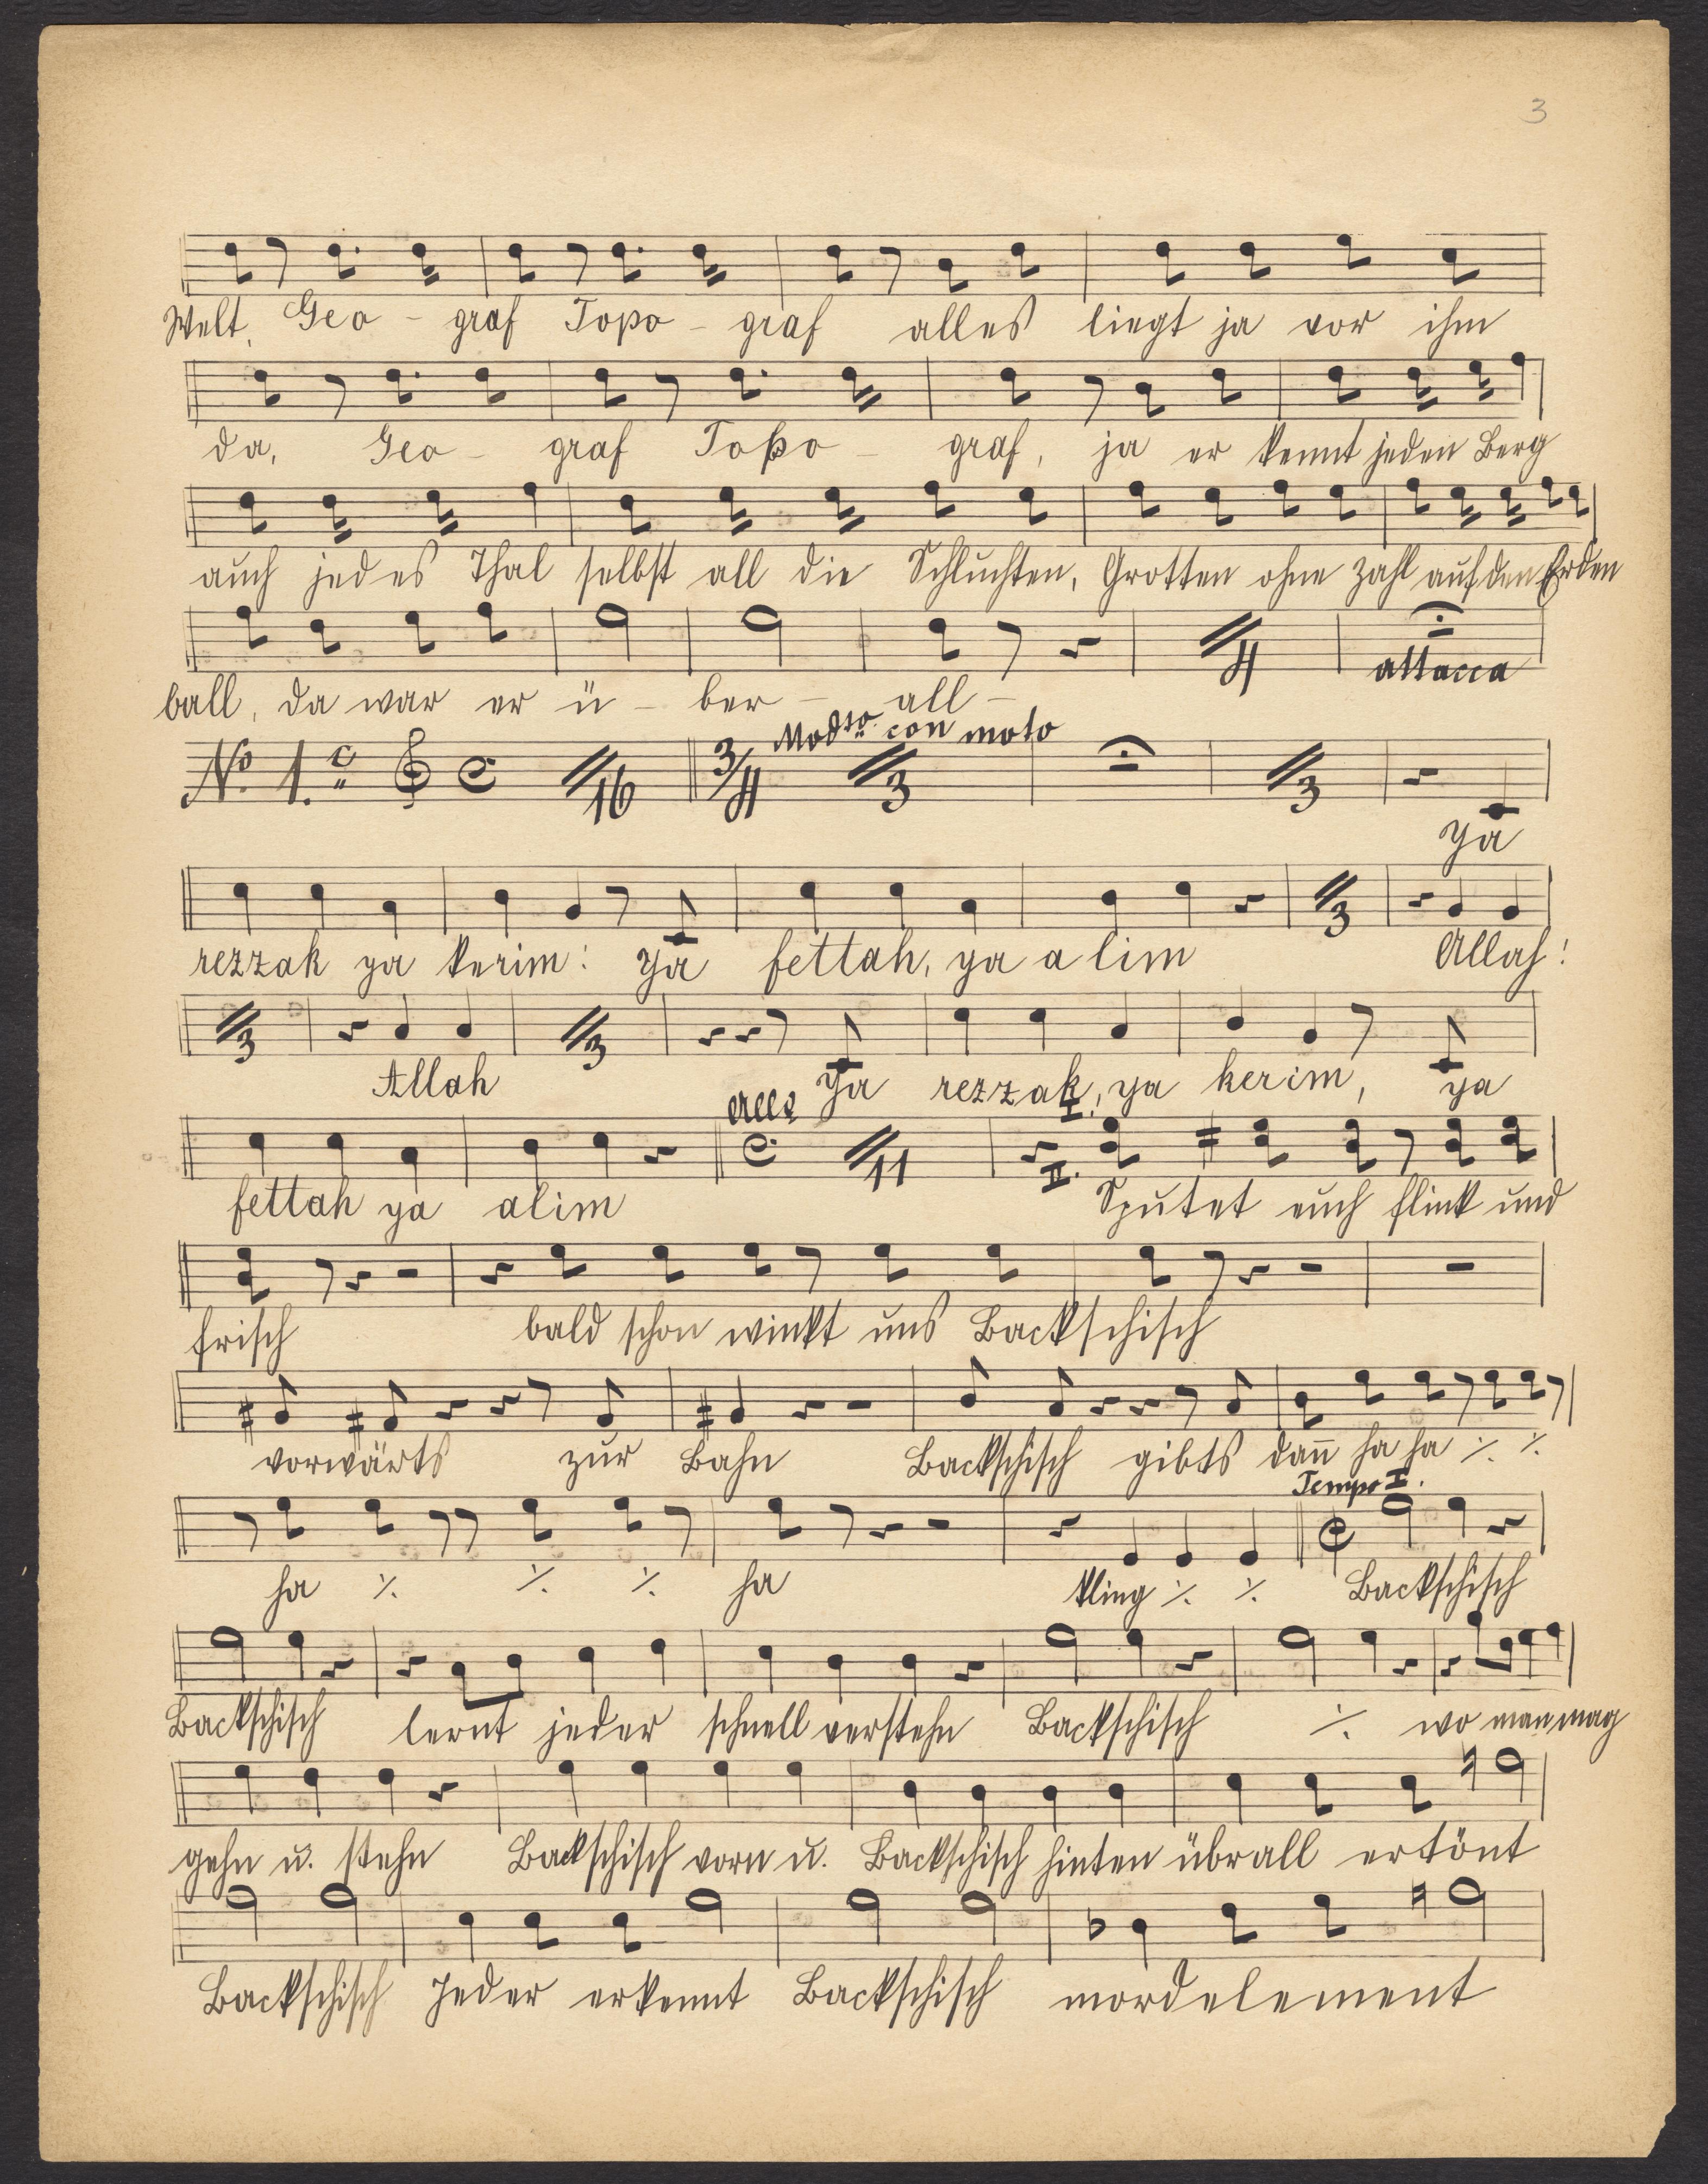 3
Welt, Geo - graf Topo - graf alles liegt ja vor ihm
da, Geo - graf Topo - graf, ja er kennt jeden Berg
auch jedes Thal selbst all die Schluchten, Grotten ohne Zahl auf den Erden
ball, da war er ü - ber - all -
4 attacca
No 1. c 16 3/4 Modto con moto 3 3
Ya
3
rezzak ya kerim: Ya fettah, ya a lim Allah!
3 3
Allah Ya rezzak, ya kerim, ya
Allo 11 I. II.
fettah ya alim Sputet euch flink und
frisch bald schon winkt uns Backschisch
vorwärts zur Bahn Backschisch gibts dañ ha ha ٪ ٪
Tempo I.
ha ٪ ٪ ٪ ha kling ٪ ٪ Backschisch
Backschisch lernt jeder schnell verstehn Backschisch ٪ wo man mag
gehn u. stehn Backschisch vorn u. Backschisch hinten übrall ertönt
Backschisch Jeder erkennt Backschisch mordelement